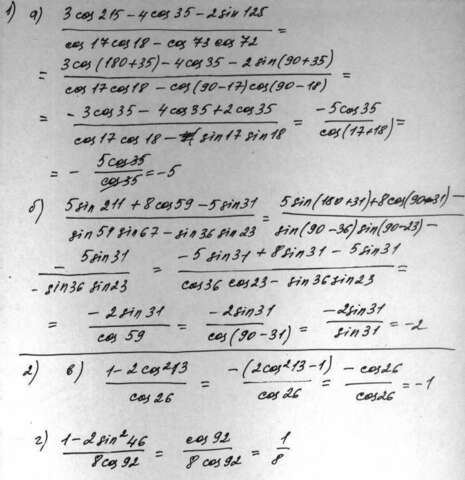 1) а) (3 cos 215 - 4 cos 35 - 2 sin 125) / (cos 17 cos 18 - cos 73 cos 72) =
= (3 cos(180+35) - 4 cos 35 - 2 sin(90+35)) / (cos 17 cos 18 - cos(90-17) cos(90-18)) =
= (-3 cos 35 - 4 cos 35 + 2 cos 35) / (cos 17 cos 18 - sin 17 sin 18) = (-5 cos 35) / (cos(17+18)) =
= - (5 cos 35) / (cos 35) = -5
б) (5 sin 211 + 8 cos 59 - 5 sin 31) / (sin 54 sin 67 - sin 36 sin 23) = (5 sin(180+31) + 8 cos(90-31) -) / (sin(90-36) sin(90-23) -)
(- 5 sin 31) / (- sin 36 sin 23) = (-5 sin 31 + 8 sin 31 - 5 sin 31) / (cos 36 cos 23 - sin 36 sin 23) =
= (-2 sin 31) / (cos 59) = (-2 sin 31) / (cos(90-31)) = (-2 sin 31) / (sin 31) = -2
2) в) (1 - 2 cos² 13) / (cos 26) = (-(2 cos² 13 - 1)) / (cos 26) = (-cos 26) / (cos 26) = -1
г) (1 - 2 sin² 46) / (8 cos 92) = (cos 92) / (8 cos 92) = 1/8